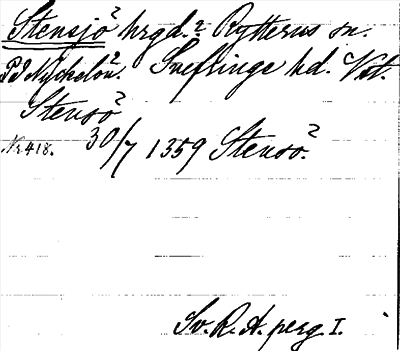 Stensjö² hrgd.² Rytterns sn.
P3 Nyckelön². Sneflinge hd. Vstm.
Stensö²
Nr 418. 30/7 1359 Stensö².
Sv. R. A. perg. I.